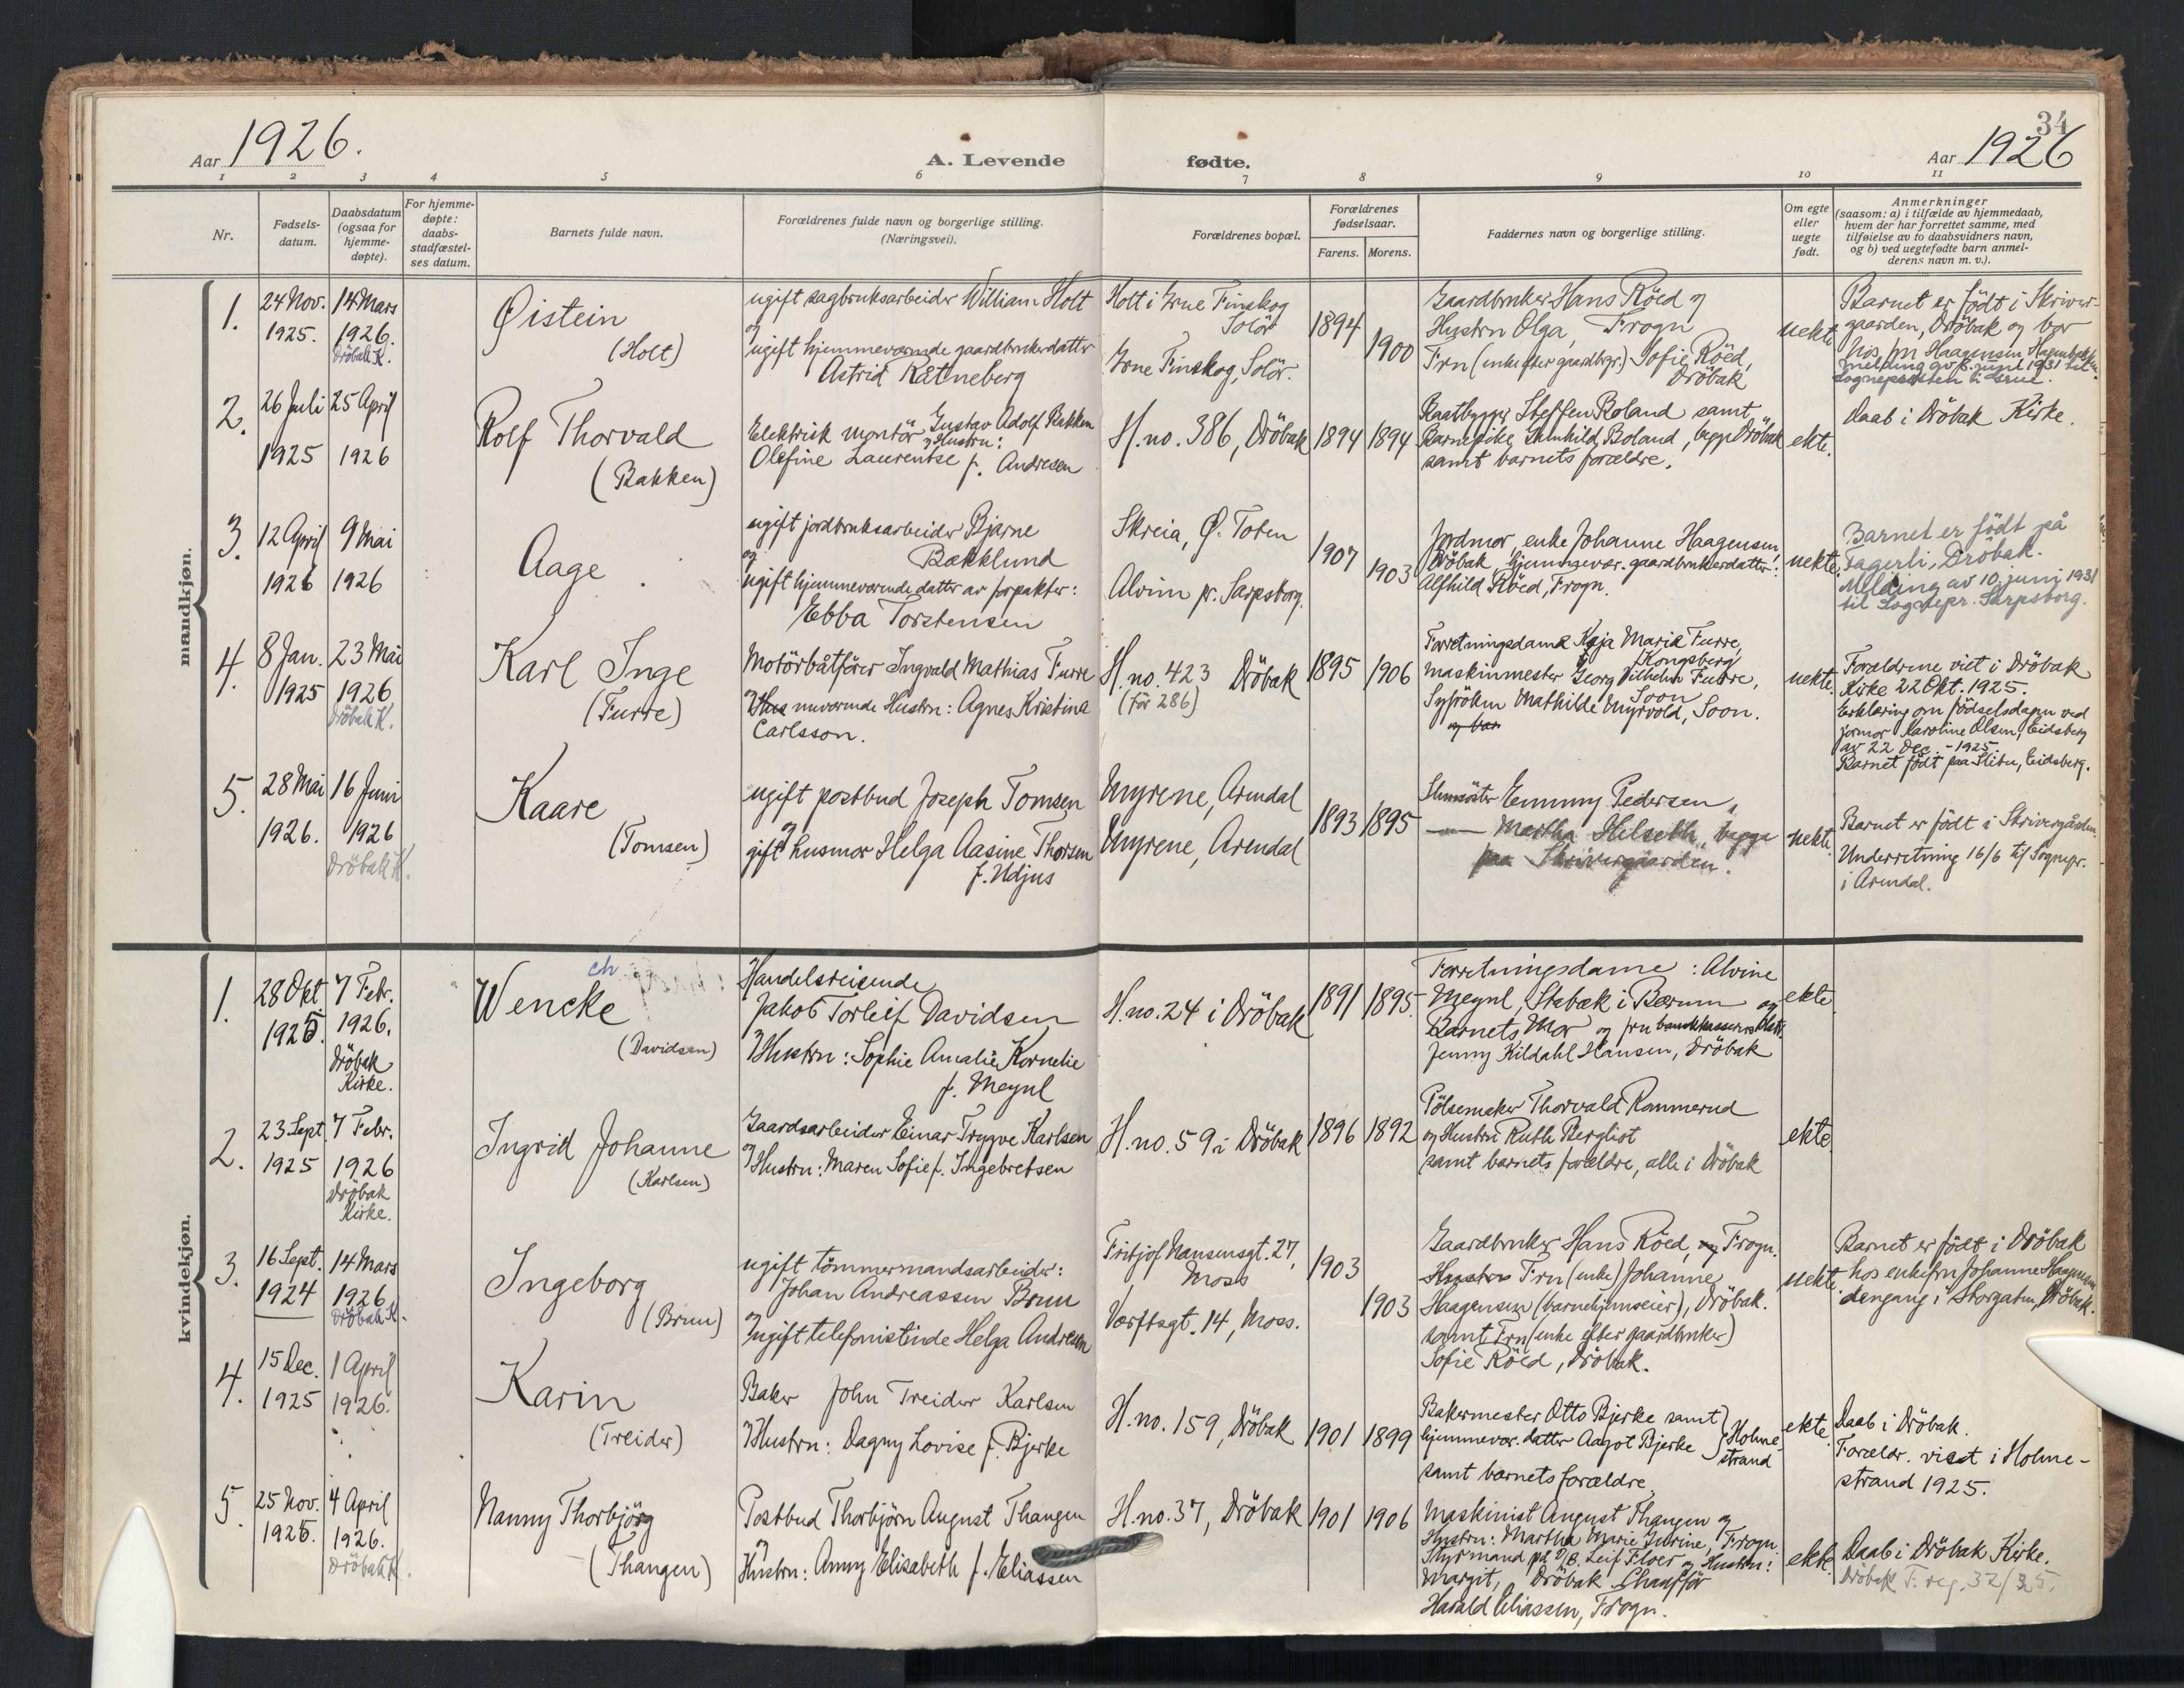 34
Aar 1926.
A. Levende
fødte.
Aar 1926
1 2 3 4 5 6 7 8 9 10 11
Nr.
Fødsels-
datum.
Daabsdatum
(ogsaa for
hjemme-
døpte).
For hjemme-
døpte:
daabs-
stadfæstel-
ses datum.
Barnets fulde navn.
Forældrenes fulde navn og borgerlige stilling.
(Næringsvei).
Forældrenes bopæl.
Forældrenes
fødselsaar.
Farens. Morens.
Faddernes navn og borgerlige stilling.
Om egte
eller
uegte
født.
Anmerkninger
(saasom: a) i tilfælde av hjemmedaab,
hvem der har forrettet samme, med
tilføielse av to daabsvidners navn,
og b) ved uegtefødte barn anmel-
derens navn m. v.).
mandkjøn.
1.
24 Nov.
1925.
14 Mars
1926.
Dröbak K.
Øistein
(Holt)
ugift sagbruksarbeider William Holt
og
ugift hjemmeværende gaardbrukerdatter
Astrid Kätneberg
Holt i Grue Finskog
Solör
Grue Finskog, Solör.
1894
1900
Gaardbruker Hans Röed og
Hustru Olga, Frogn
Fru (enke efter gaardbgr.) Sofie Röed,
Dröbak
uekte
Barnet er födt i Skriver-
gaarden, Dröbak og bor
hos fru Haagensen,
melding av 8. juni 1931 til
Sognepresten i Grue.
2.
26 Juli
1925
25 April
1926
Rolf Thorvald
(Bakken)
Elektrisk montör Gustav Adolf Bakken
og Hustru:
Olefine Laurentse f. Andresen
H. no. 386, Dröbak
1894
1894
Baatbygger Steffen Boland samt
Barnepike Gunhild Boland, begge Dröbak
samt barnets forældre.
ekte.
Daab i Dröbak Kirke.
3.
12 April
1926
9 Mai
1926
Aage
ugift jordbruksarbeider Bjarne
Bækklund
og
ugift hjemmeværende datter av forpakter:
Ebba Torstensen
Skreia, Ø. Toten
Alvim pr. Sarpsborg.
1907
1903
Jordmor, enke Johanne Haagensen,
Dröbak, hjemmevær. gaardbrukerdatter:
Alfhild Röed, Frogn.
uekte.
Barnet er födt på
Fagerli, Dröbak.
Melding av 10. juni 1931
til Sognepr. Sarpsborg.
4.
8 Jan.
1925
23 Mai
1926
Dröbak K.
Karl Inge
(Furre)
Motörbåtförer Ingvald Mathias Furre
og Hus nuværende Hustru: Agnes Kristina
Carlsson.
H. no. 423 Dröbak
(för 286)
1895
1906
Forretningsdame Kaja Marie Furre,
Kongsberg
maskinmester Georg Vilhelm Furre,
Soon
Syfröken Mathilde Myrvold, Soon.
og bar
uekte.
Forældrene viet i Dröbak
Kirke 22 Okt. 1925.
Erklæring om födselsdagen ved
jormor Karoline Olsen, Eidsberg
av 22 Dec. - 1925
Barnet födt paa Slitu, Eidsberg.
5.
28 Mai
1926.
16 Juni
1926
Dröbak K.
Kaare
(Tomsen)
ugift postbud Joseph Tomsen
og
gift husmor Helga Aasine Thorsen
f. Udjus
Myrene, Arendal
Myrene, Arendal
1893
1895
Slumsöster Emmy Pedersen,
Martha Helseth, begge
paa Skrivergaarden.
uekte.
Barnet er födt i Skrivergården.
Underretning 16/6 til Sognepr.
i Arendal.
kvindekjøn.
1.
28 Okt
1925.
7 Febr.
1926.
Dröbak
Kirke.
ch
Wencke
(Davidsen)
Handelsreisende
Jakob Torleif Davidsen
og Hustru: Sophie Amalie Kornelie
f. Meynl
H. no. 24 i Dröbak
1891
1895.
Forretningsdame: Alvine
Meynl, Stabæk i Bærum og
Barnets Mor og fru bankkasserer
Jenny Kildahl Hansen, Dröbak
ekte
2.
23 Sept
1925
7 Febr.
1926
Dröbak
Kirke.
Ingrid Johanne
(Karlsen)
Gaardsarbeider Einar Trygve Karlsen
og
Hustru: Maren Sofie f. Ingebretsen
H. no. 59 i Dröbak
1896
1892
Pölsemaker Thorvald Rammerud
og Hustru Ruth Bergliot
samt barnets forældre, alle i Dröbak
ekte.
3.
16 Sept.
1924
14 Mars
1926
Dröbak K.
Ingeborg
(Brun)
ugift tömmermandsarbeider:
Johan Andreassen Brun
og
ugift telefonistinde Helga Andresen
Fritjof Nansensgt. 27,
Moss
Værftsgt. 14, Moss.
1903
1903
Gaardbruker Hans Röed, og Frogn.
Hustru Fru (enke) Johanne
Haagensen (barnehjemseier), Dröbak.
samt Fru (enke efter gaardbruker)
Sofie Röed, Dröbak.
uekte.
Barnet er födt i Dröbak
hos enkefru Johanne Haagensen
dengang i Storgaten, Dröbak.
4.
15 Dec.
1925
1 April
1926.
Karin
(Treider)
Baker John Treider Karlsen
og Hustru: Dagny Lovise f. Bjerke
H. no. 159, Dröbak
1901
1899
Bakermester Otto Bjerke samt
hjemmevær. datter Aagot Bjerke
Holme-
strand
samt barnets forældre
ekte.
Daab i Dröbak.
Forældr. viet i Holme-
strand 1925.
5.
25 Nov.
1925.
4 April
1926.
Dröbak K.
Nanny Thorbjörg
(Thangen)
Postbud Thorbjörn August Thangen
og
Hustru: Anny Elisabeth f. Eliassen
H. no. 37, Dröbak
1901
1906
Maskinist August Thangen og
Hustru: Martha Marie Gurine, Frogn.
Styrmand på D/S. Leif Floer og Hustru:
Margit, Dröbak. Chafför
Harald Eliassen, Frogn.
ekte.
Daab i Dröbak Kirke.
Dröbak F. reg. 32/25.